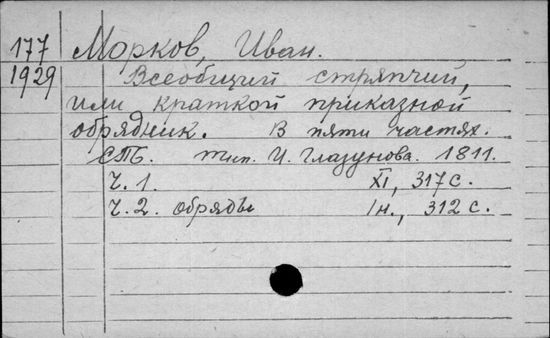 177 Морков, Иван.
1929 Всеобщий стряпчий,
или краткой приказной
обрядник. В пяти частях.
СПб. тип. И. Глазунова. 1811.
Ч. 1. XI, 317 с.
Ч. 2. обряды 1н., 312 с.